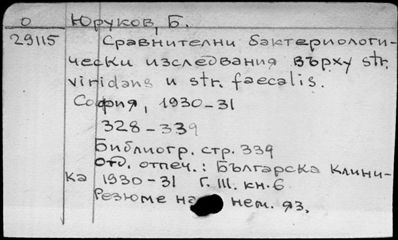 О Юруков, Б.
29115 Сравнителни бактериологи-
чески изследвания върху str.
viridans и str. faecalis.
София, 1930-31
328-339
Библиогр. стр. 339
Отд. отпеч.: Българска клини-
ка 1930-31 Г. III. кн. 6
Резюме на нем. яз.